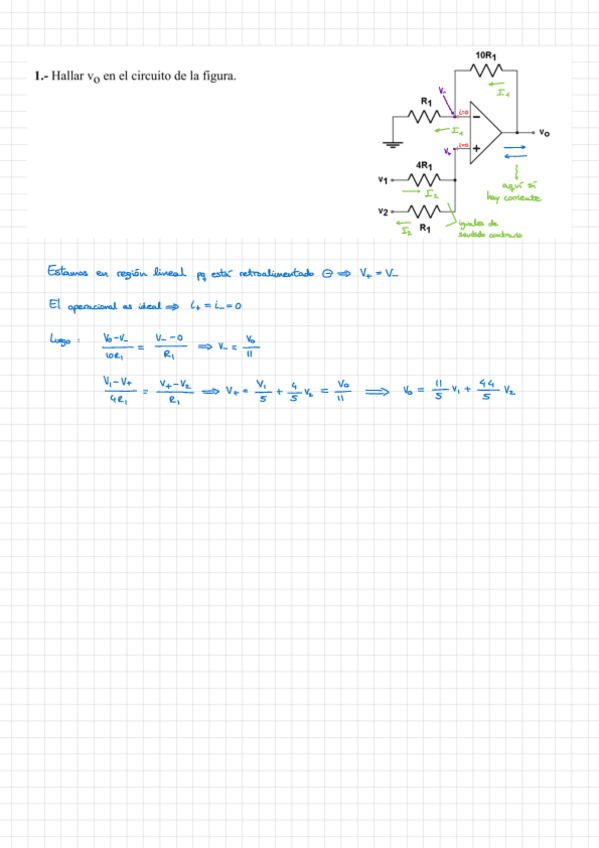 1.- Hallar vo en el circuito de la figura.
10R1
I1
V-
R1
i=0
-
I1
vo
i=0
V+
+
4R1
v1
I2
aquí sí
hay corriente
v2
R1
I2
iguales de
sentido contrario
Estamos en región lineal pq está retroalimentado ⊖ ⇒ V+ = V-
El operacional es ideal ⇒ i+ = i- = 0
Luego: (Vo - V-)/(10R1) = (V- - 0)/R1 ⇒ V- = Vo/11
(V1 - V+)/(4R1) = (V+ - V2)/R1 ⇒ V+ = V1/5 + 4/5 V2 = Vo/11 ⇒ Vo = 11/5 V1 + 44/5 V2